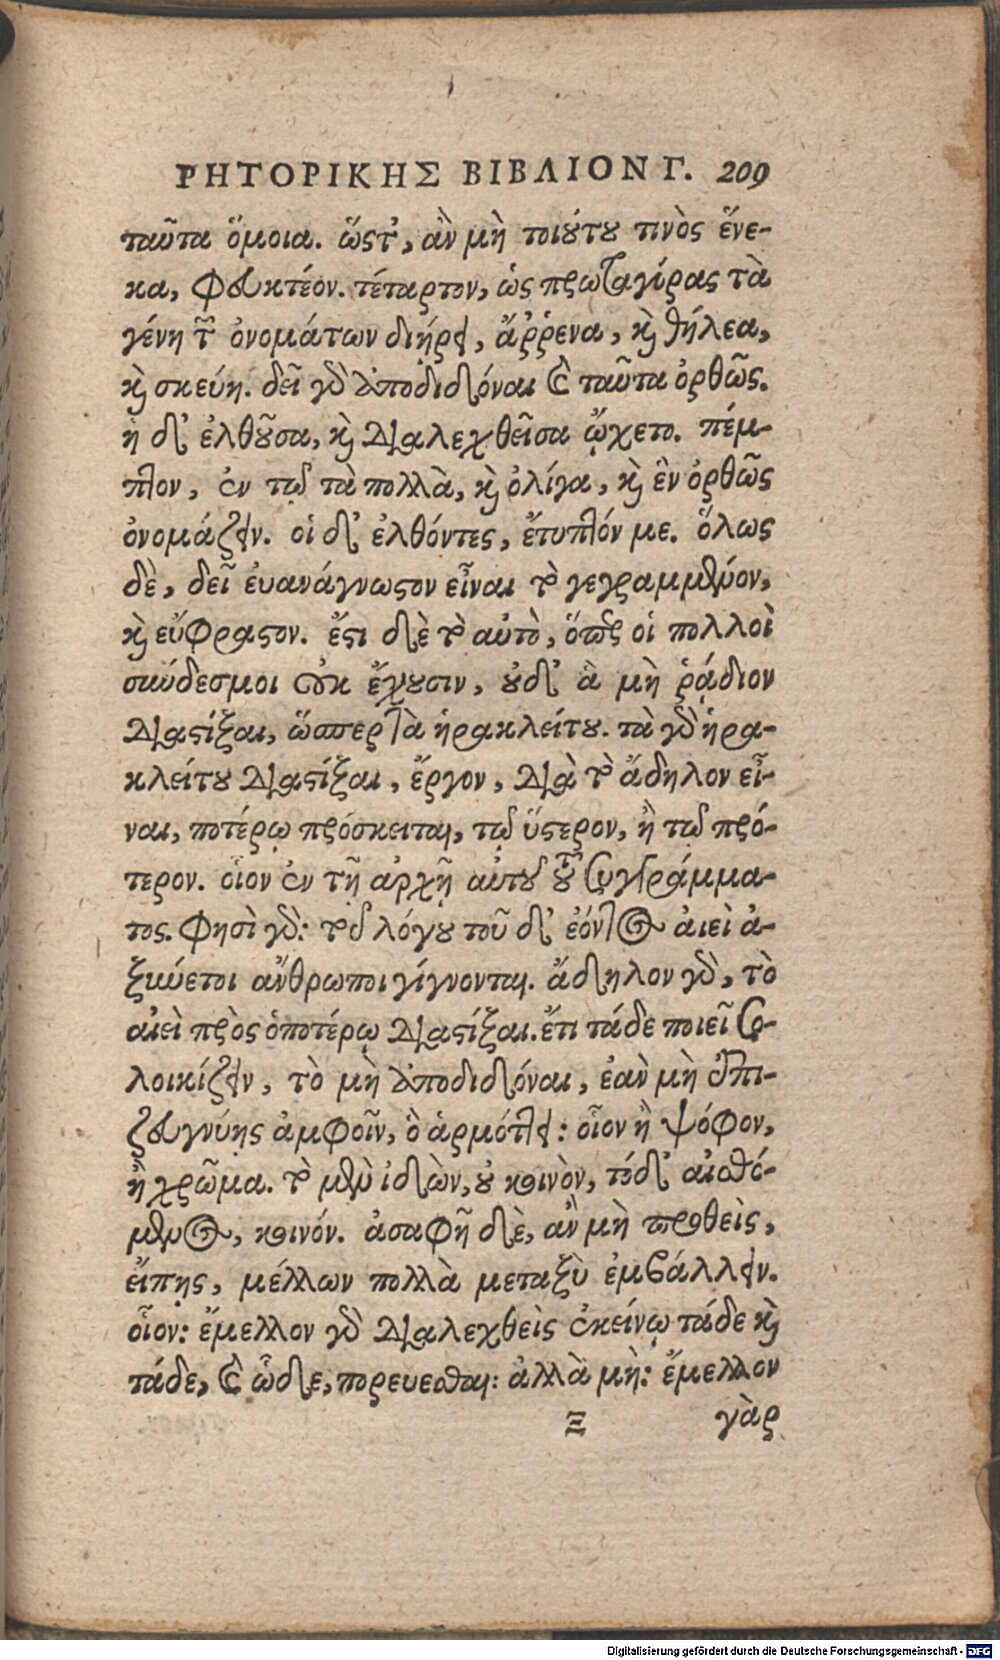 ΡΗΤΟΡΙΚΗΣ ΒΙΒΛΙΟΝ Γ. 209
ταῦτα ὅμοια. ὥστ', ἂν μὴ τοιούτου τινὸς ἕνε-
κα, φευκτέον. τέταρτον, ὡς πρωταγόρας τὰ
γένη τῶν ὀνομάτων διῄρει, ἄῤῥενα, καὶ θήλεα,
καὶ σκεύη. δεῖ γὰρ ἀποδιδόναι καὶ ταῦτα ὀρθῶς.
ἡ δ' ἐλθοῦσα, καὶ διαλεχθεῖσα ᾤχετο. πέμ-
πτον, ἐν τῷ τὰ πολλὰ, καὶ ὀλίγα, καὶ ἓν ὀρθῶς
ὀνομάζειν. οἱ δ' ἐλθόντες, ἔτυπτόν με. ὅλως
δὲ, δεῖ ἐυανάγνωστον εἶναι τὸ γεγραμμένον,
καὶ εὔφραστον. ἔστι δὲ τὸ αὐτὸ, ὅπερ οἱ πολλοὶ
σύνδεσμοι οὐκ ἔχουσιν, οὐδ' ἃ μὴ ῥᾴδιον
διαστίξαι, ὥσπερ τὰ ἡρακλείτου. τὰ γὰρ ἡρα-
κλείτου διαστίξαι, ἔργον, διὰ τὸ ἄδηλον εἶ-
ναι, ποτέρῳ πρόσκειται, τῷ ὕστερον, ἢ τῷ πρό-
τερον. οἷον ἐν τῇ ἀρχῇ αὐτοῦ τοῦ συγγράμμα-
τος. φησὶ γὰρ: τοῦ λόγου τοῦ δ' ἐόντος ἀιεὶ ἀ-
ξύνετοι ἄνθρωποι γίγνονται. ἄδηλον γὰρ, τὸ
αἰεὶ πρὸς ὁποτέρῳ διαστίξαι. ἔτι τάδε ποιεῖ σο-
λοικίζειν, τὸ μὴ ἀποδιδόναι, ἐὰν μὴ ἐπι-
ζευγνύῃς ἀμφοῖν, ὃ ἁρμόττει: οἷον ἢ ψόφον,
ἢ χρῶμα. τὸ μὲν ἰδὼν, οὐ κοινὸν, τόδ' αἰσθό-
μενος, κοινόν. ἀσαφῆ δὲ, ἂν μὴ προθεὶς,
εἴπῃς, μέλλων πολλὰ μεταξὺ ἐμβάλλειν.
οἷον: ἔμελλον γὰρ διαλεχθεὶς ἐκείνῳ τάδε καὶ
τάδε, καὶ ὧδε, πορευεσθαι: ἀλλὰ μὴ: ἔμελλον
Ξ γὰρ
Digitalisierung gefördert durch die Deutsche Forschungsgemeinschaft - DFG